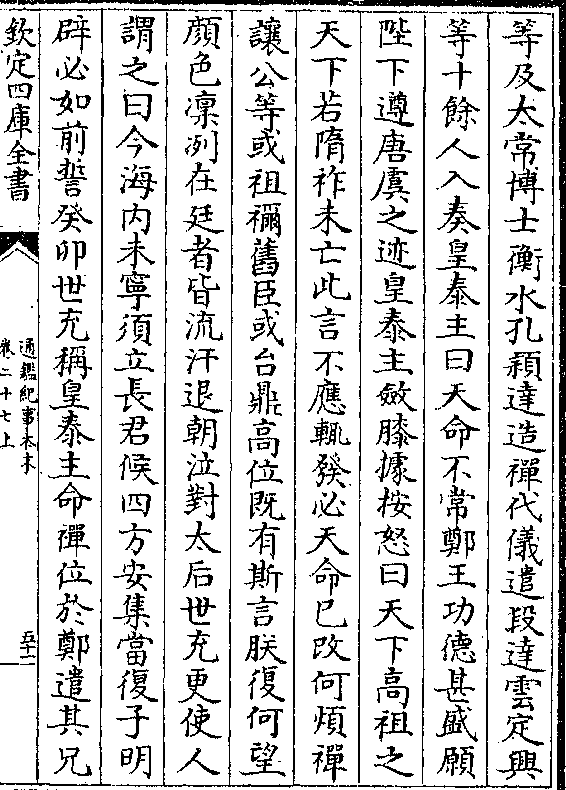 等及太常博士衡水孔穎達造禪代儀遣段達雲定興
等十餘人入奏皇泰主曰天命不常鄭王功德甚盛願
陛下遵唐虞之迹皇泰主斂膝據桉怒曰天下高祖之
天下若隋祚未亡此言不應輒發必天命已改何煩禪
讓公等或祖禰舊臣或台鼎高位既有斯言朕復何望
顔色凜冽在廷者皆流汗退朝泣對太后世充更使人
謂之曰今海内未寧須立長君候四方安集當復子明
辟必如前誓癸卯世充稱皇泰主命禪位於鄭遣其兄
欽定四庫全書
通鑑紀事本末
卷二十七上
五十一